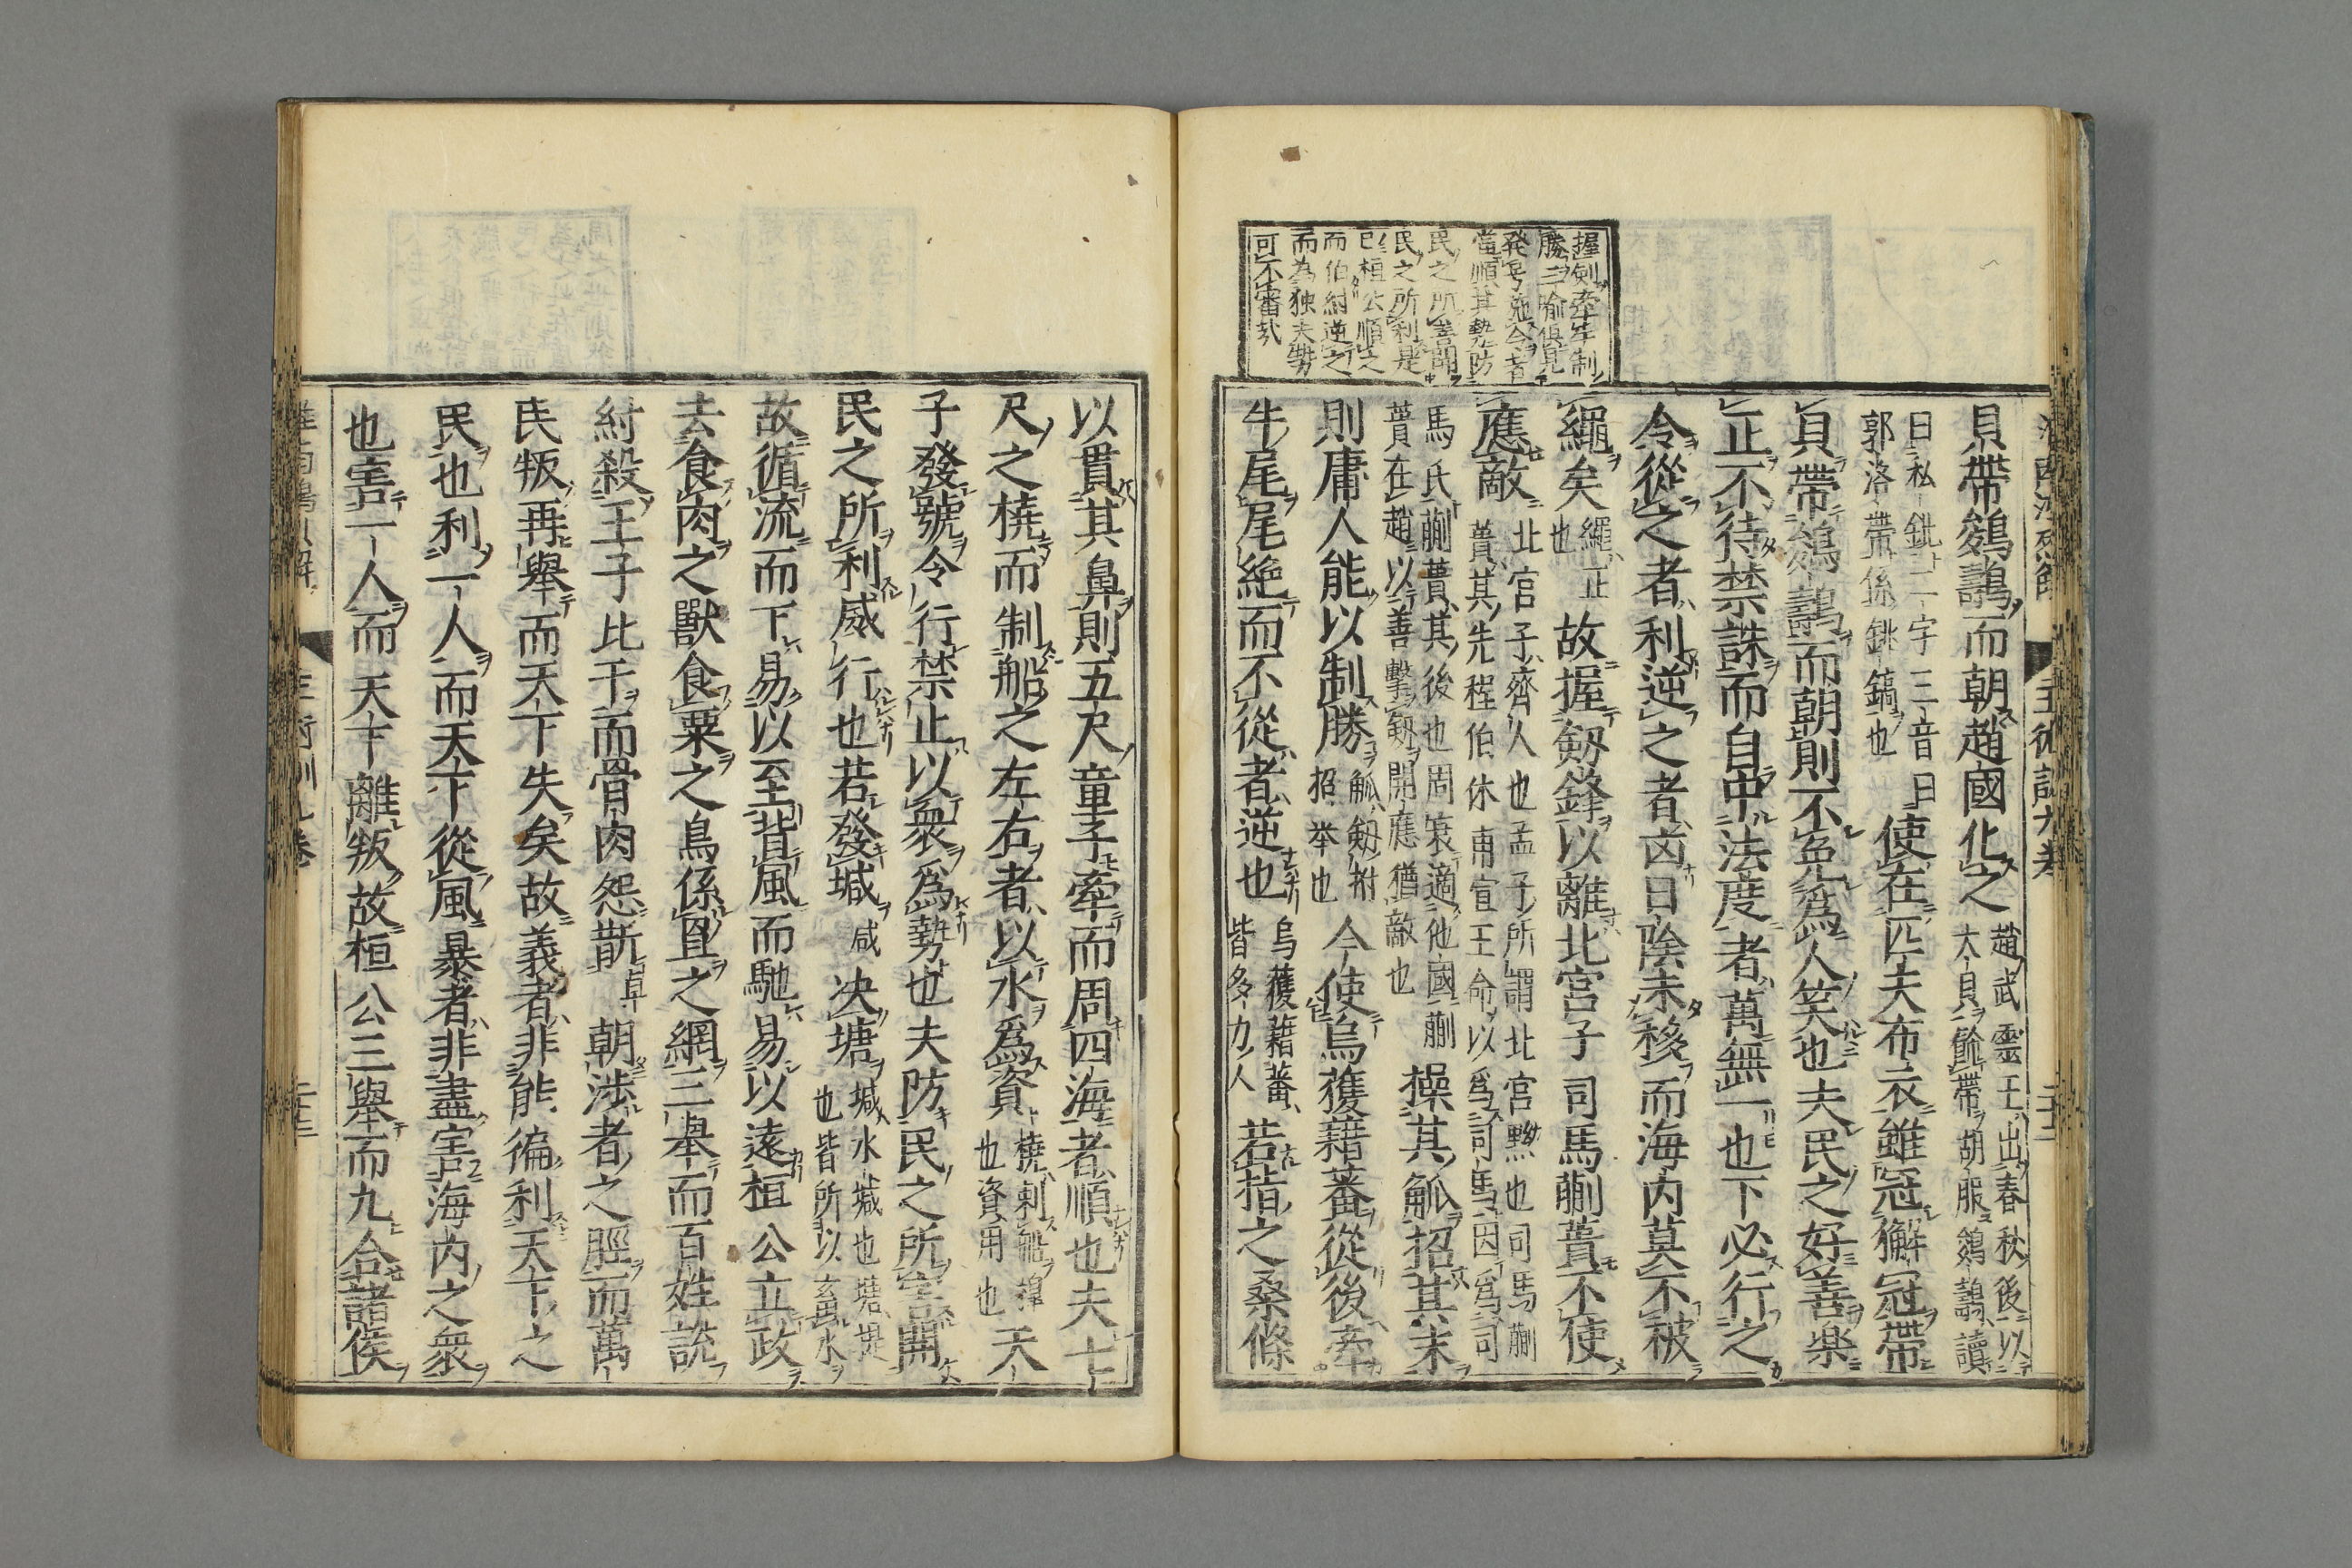 握剣牽牛制
勝三喻俱見
発号施令者
當順其勢防
民之所害開
民之所利是
已桓公順之
而伯紂逆之
而為独夫勢
可不審哉
貝帶鵕䴊而朝趙國化之趙武靈王出春秋後以大貝飾帶胡服鵕䴊讀
曰私鈚二字三音曰郭洛帶係銚鎬也使在匹夫布衣雖冠獬冠帶
貝帶鵕䴊而朝則不免爲人笑也夫民之好善楽
正不待禁誅而自中法度者萬無一也下必行之
令從之者利逆之者凶日陰未移而海内莫不被
繩矣繩正也故握劔鋒以離北宮子司馬蒯蕢不使
應敵北宮子齊人也孟子所謂北宮黝也司馬蒯蕢其先程伯休甫宣王命以爲司馬因爲司
馬氏蒯蕢其後也周衰適他國蒯蕢在趙以善擊劔聞應猶敵也操其觚招其末
則庸人能以制勝觚劔拊招举也今使烏獲藉蕃從後牽
牛尾尾絶而不從者逆也烏獲藉蕃皆多力人若指之桑條
以貫其鼻則五尺童子牽而周四海者順也夫七
尺之橈而制船之左右者以水爲資橈剌船槕也資用也天
子發號令行禁止以衆爲勢也夫防民之所害開
民之所利威行也若發堿咸决塘堿水堿也塘堤也皆所以畜水
故循流而下易以至背風而馳易以遠桓公立政
去食肉之獸食粟之鳥係罝之網三舉而百姓說
紂殺王子比干而骨肉怨斮卓朝渉者之脛而萬
民叛再舉而天下失矣故義者非能徧利天下之
民也利一人而天下從風暴者非盡害海内之衆
也害一人而天下離叛故桓公三舉而九合諸侯